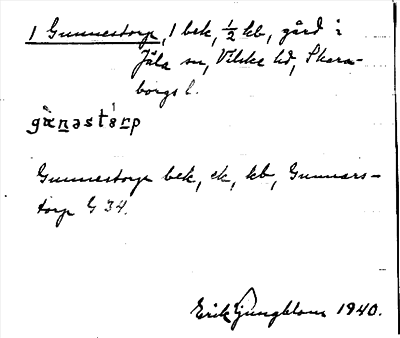 1 Gunnestorp, 1 bek, ½ kb, gård i
Jäla sn, Vilske hd, Skara-
borgs l.
gönastorp
Gunnestorp bek, ek, kb, Gunnars-
torp G 34.
Erik Ljungblom 1940.